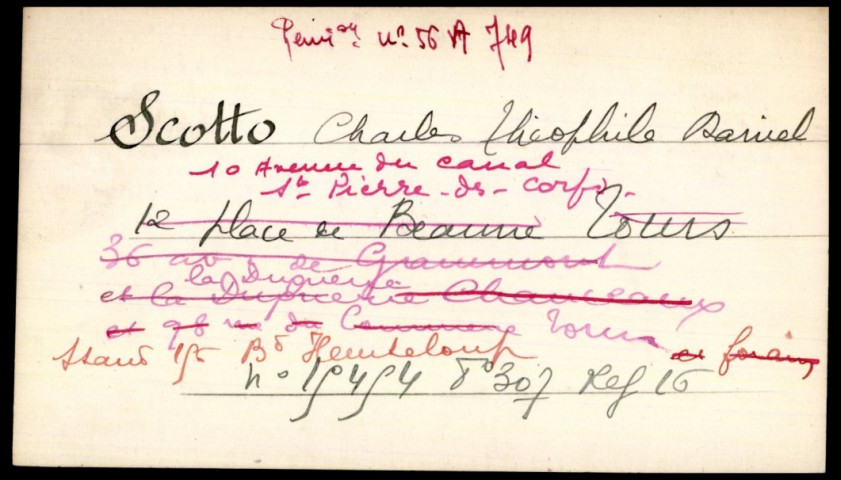 nº 56 A 749
Scotto Charles Théophile Daniel
10 Avenue du canal
St Pierre-des-Corps.
12 place de Beaune Tours
36 av. de Grammont
la Dupinerie
et la Dupinerie Chanceaux
et 98 rue du Commerce Tours
et forain
Stand 15 Bd Heurteloup
nº 15454 Fº 307 Reg 16